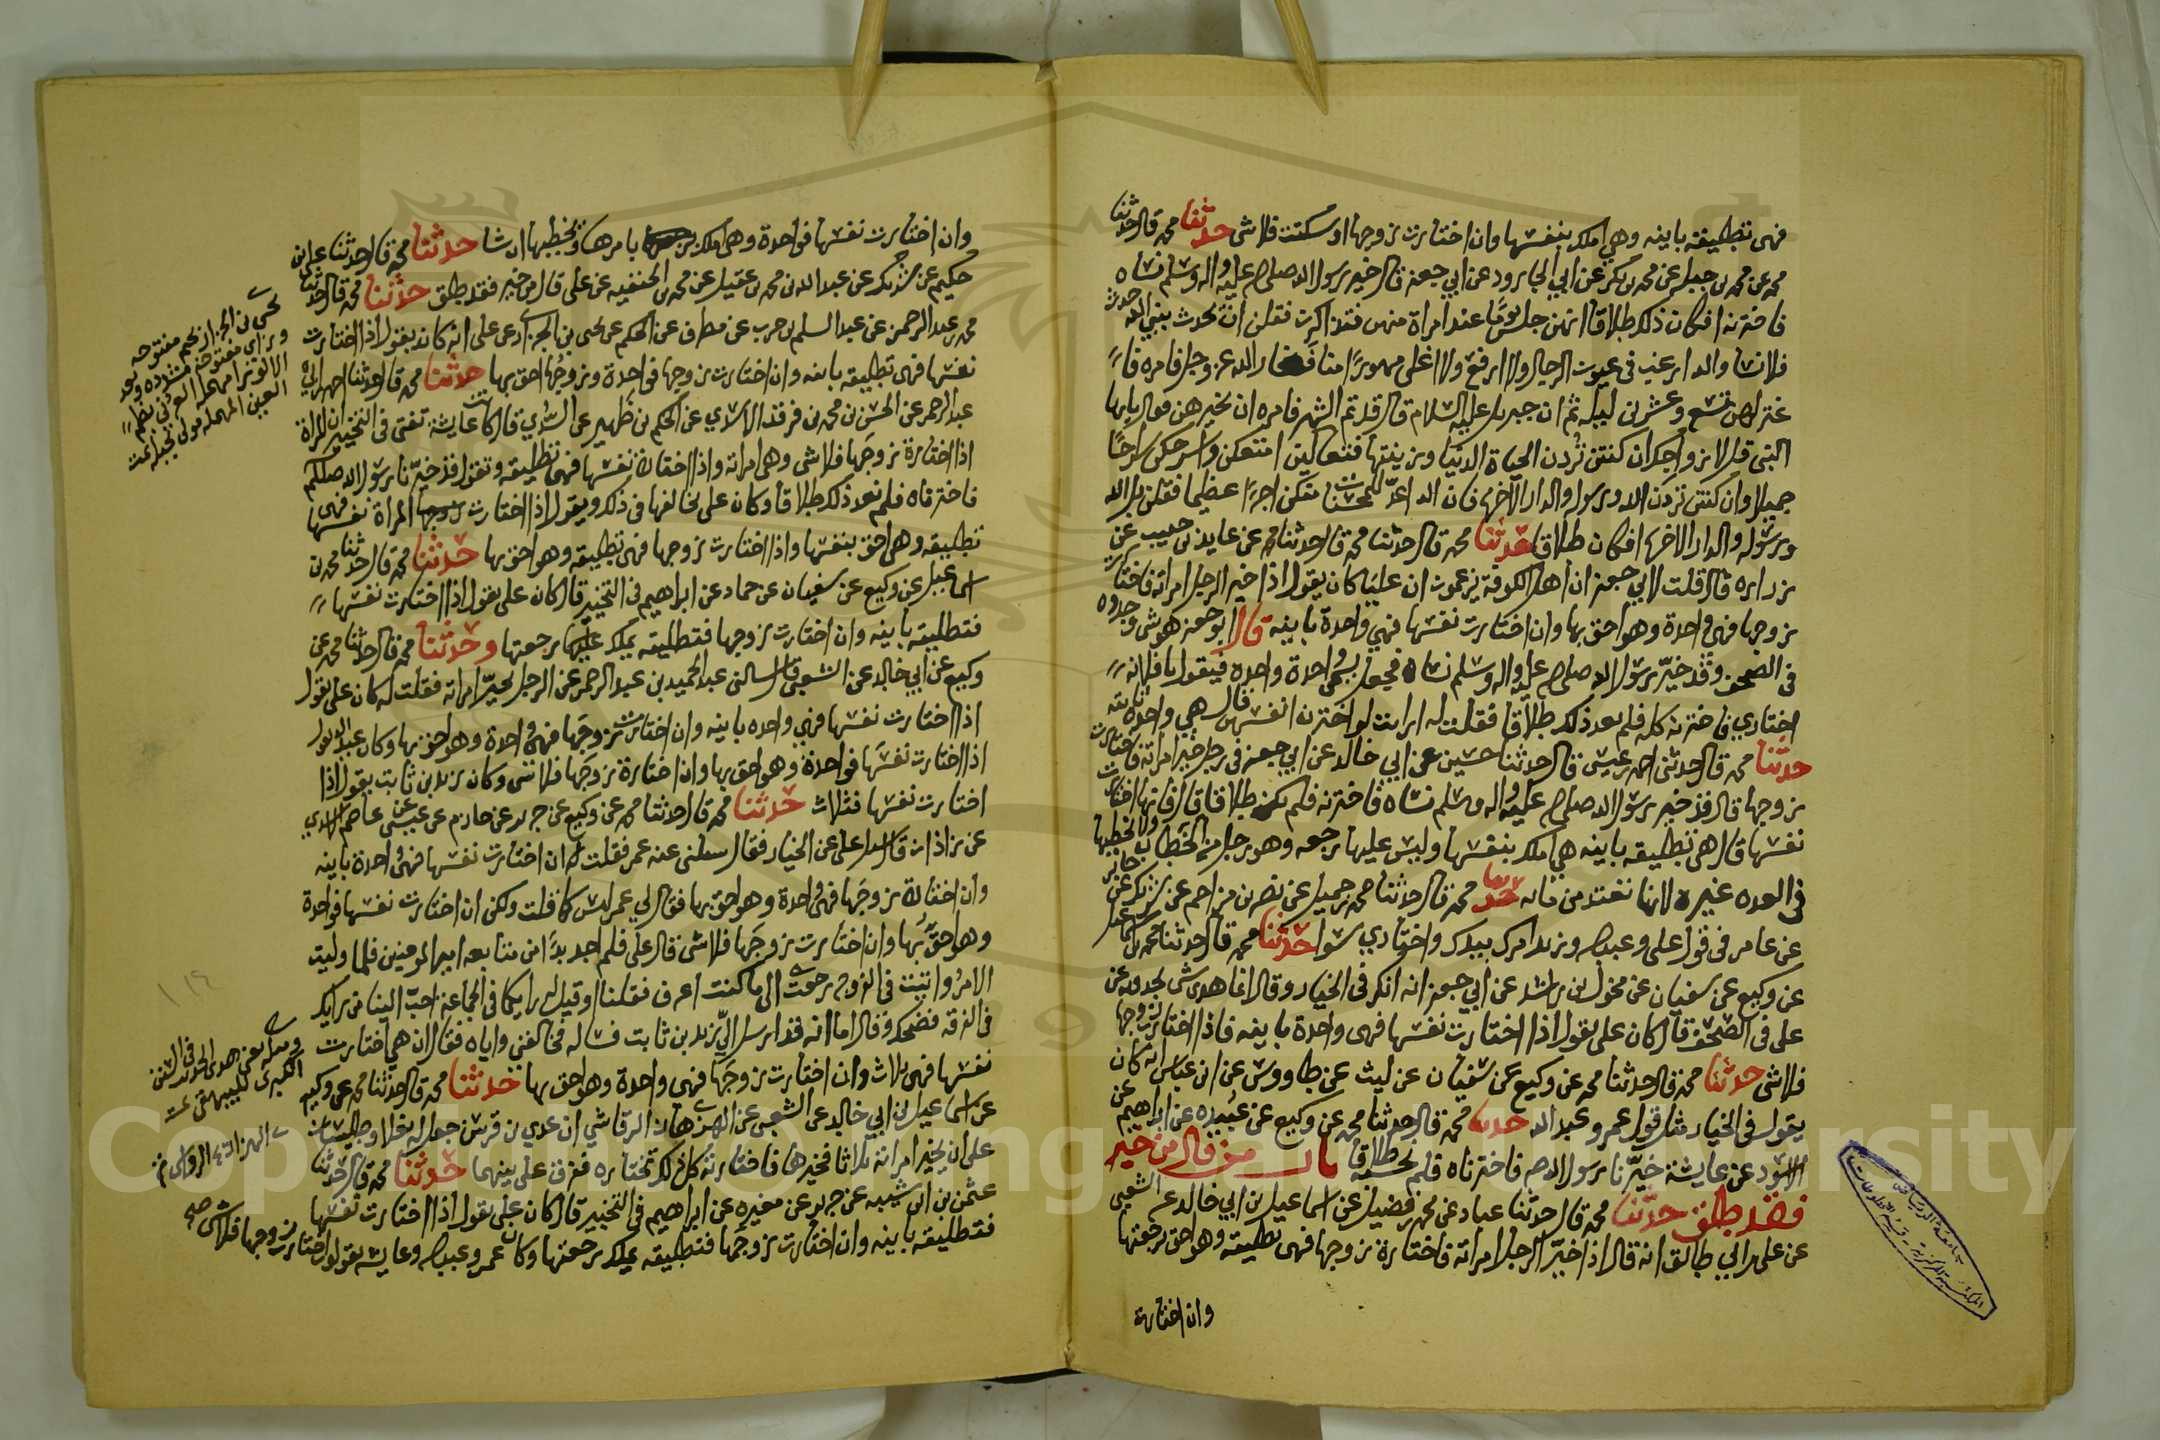 فهى تطليقه باينه وهي املك بنفسها وان اختارت زوجها او سكتت فلا شى حدثنا محمد قال حدثنا
محمد عن محمد بن جبل عن محمد بن بكر عن ابي الجارود عن ابي جعفر قال خير رسول الله صلى الله عليه واله وسلم نساه
فاخترنه افكان ذلك طلاقا انهن جلس يوما عند امراة منهن فتذاكرن فقلن ان تحدث بنبي الله حدث
فلا نشا والله ارغب في عيون الرجال ولا ارفع ولا اغلى مهورا منا فغار الله عز وجل فامره فا
عتزلهن تسع وعشرين ليله ثم ان جبريل عليه السلام قال قد تم الشهر فامره ان يخيرهن فقال يايها
النبي قل لازواجك ان كنتن تردن الحياة الدنيا وزينتها فتعالين امتعكن واسرحكن سراحا
جميلا وان كنتن تردن الله ورسوله والدار الاخرة فان الله اعد للمحسنات منكن اجرا عظيما فقلن بل الله
ورسوله والدار الاخرة افكان طلاقا حدثنا محمد قال حدثنا محمد قال حدثنا محمد عن عايذ بن حبيب عن
زراره قال قلت لابي جعفر ان اهل الكوفة يزعمون ان عليا كان يقول اذا خير الرجل امراته فاختارت
زوجها فهى واحدة وهو احق بها وان اختارت نفسها فهي واحدة باينه قال ابو جعفر هو شى وجدوه
في الصحف وقد خير رسول الله صلى الله عليه واله وسلم نساه فجعل يجي واحدة واحده فيقول يا فلانه
اختاري فاخترنه كلهن فلم يعد ذلك طلاقا فقلت له ارايت لو اخترن انفسهن قال هي واحدة باينه
حدثنا محمد قال حدثني احمد بن عيسى قال حدثنا حسين عن ابي خالد عن ابي جعفر في رجل خير امراته فاختارت
زوجها قال قد خير رسول الله صلى الله عليه واله وسلم نساه فاخترنه فلم يكن طلاقا قال فانها اختارت
نفسها قال هى تطليقه باينه هي املك بنفسها وليس عليها رجعه وهو رجل من الخطاب ولا يخطبها
في العده غيره لانها تعتد من مايه حدثنا محمد قال حدثنا محمد بن جميل عن نصر بن مزاحم عن شريك عن جابر
عن عامر في قول على وعبدالله وزيد امرك بيدك واختاري سوا حدثنا محمد قال حدثنا محمد بن اسماعيل
عن وكيع عن سفيان عن مخول بن راشد عن ابي جعفر انه انكر في الخيار وقال انما هذا شى يجدونه عن
على في الصحف قال كان على يقول اذا اختارت نفسها فهى واحدة باينه فاذا اختارت زوجها
فلا شى حدثنا محمد قال حدثنا محمد عن وكيع عن سفيان عن ليث عن طاووس عن ابن عباس انه كان
يقول في الخيار مثل قول عمر وعبد الله حدثنا محمد قال حدثنا محمد عن وكيع عن عبيده عن ابراهيم عن
الاسود عن عايشة خيرنا رسول الله صلعم فاخترناه فلم نحسبه طلاقا باب من قال من خير
فقد طلق حدثنا محمد قال حدثنا عباد عن محمد بن فضيل عن اسماعيل بن ابي خالد عن الشعبي
عن علي بن ابي طالب انه قال اذا خير الرجل امراته فاختارة زوجها فهى تطليقه وهو احق برجعتها
وان اختارت
جامعة الرياض
المكتبة المركزية - قسم المخطوطات
وان اختارت نفسها فواحدة وهى املك بامرها ويخطبها ان شا حدثنا محمد قال حدثنا على بن
حكيم عن شريك عن عبد الله بن محمد بن عقيل عن محمد بن الحنفيه عن على قال من خير فقد طلق حدثنا محمد قال حدثنا
محمد بن عبد الرحمن عن عبد السلم بن حرب عن مطرف عن الحكم عن يحى بن الجزار عن على انه كان يقول اذا اختارت
نفسها فهى تطليقه باينه وان اختارت زوجها فواحدة وزوجها احق بها حدثنا محمد قال حدثنا ابراهيم ابن
عبد الرحمن عن الحسن بن محمد بن فرقد الاسدي عن الحكم بن ظهير عن السدي قال كانت عايشة تفتي في التخيير ان المراة
اذا اختارة زوجها فلا شى وهى امراته واذا اختارة نفسها فهى تطليقه وتقول قد خيرنا رسول الله صلعم
فاخترناه فلم نعد ذلك طلاقا وكان على يخالفها في ذلك ويقول اذا اختارت المراة نفسها فهى
تطليقه وهى احق بنفسها واذا اختارت زوجها فهى تطليقه وهو احق بها حدثنا محمد قال حدثنا محمد بن
اسماعيل عن وكيع عن سفيان عن حماد عن ابراهيم في التخيير قال كان على يقول اذا اختارت نفسها
فتطليقه باينه وان اختارت زوجها فتطليقه يملك عليها رجعتها وحدثنا محمد قال حدثنا محمد عن
وكيع عن ابي خالد عن الشعبي قال سالني عبد الحميد بن عبد الرحمن عن الرجل يخير امراته فقلت له كان على يقول
اذا اختارت نفسها فهي واحده باينه وان اختارت زوجها فهى واحدة وهو احق بها وكان عبدالله يقول
اذا اختارت نفسها فواحدة وهو احق بها وان اختارة زوجها فلا شى وكان زيد بن ثابت يقول اذا
اختارت نفسها فثلاث حدثنا محمد قال حدثنا محمد عن وكيع عن جرير عن حازم عن عيسى عن عاصم الاسدي
عن زاذان قال سئل على عن الخيار فقال سالني عنه عمر فقلت له ان اختارت نفسها فهى واحدة باينه
وان اختارة زوجها فهى واحدة وهو احق بها فقال لي عمر ليس كما قلت ولكن ان اختارت نفسها فواحدة
وهو احق بها وان اختارت زوجها فلا شى قال على فلم اجد بدا من متابعه امير المومنين فلما وليت
الامر واتيت في الفروج رجعت الى ما كنت اعرف فقلنا او قيل له رايكما في الجماعه احب الينا من رايك
في الفرقه فضحك وقال اما انه قد ارسل الى زيد بن ثابت فساله فخالفني واياه فقال ان هي اختارت
نفسها فهى ثلاث وان اختارت زوجها فهى واحدة وهو احق بها حدثنا محمد قال حدثنا محمد عن وكيع
عن اسماعيل بن ابي خالد عن الشعبى عن الرقاشي ان عدي بن قرش جعل له بغلا
على ان يخير امراته ثلاثا فخيرها فاختارته كل ذلك تختاره ففرق على بينهما حدثنا محمد قال حدثنا
عثمن بن ابي شيبه عن جرير عن مغيره عن ابراهيم في التخيير قال كان على يقول اذا اختارت نفسها
فتطليقه باينه وان اختارت زوجها فتطليقه يملك رجعتها وكان عمر وعبدالله وعايشه يقولون ان اختارت زوجها فلا شى صح
يحى بن الجزار بجيم مفتوحه
وزاي مفتوحة مشدده وبعد
الالف را مهمله العرني بضم
العين المهمله مولى بجيله تمت
في السنن
الكبرى للبيهقي تمت